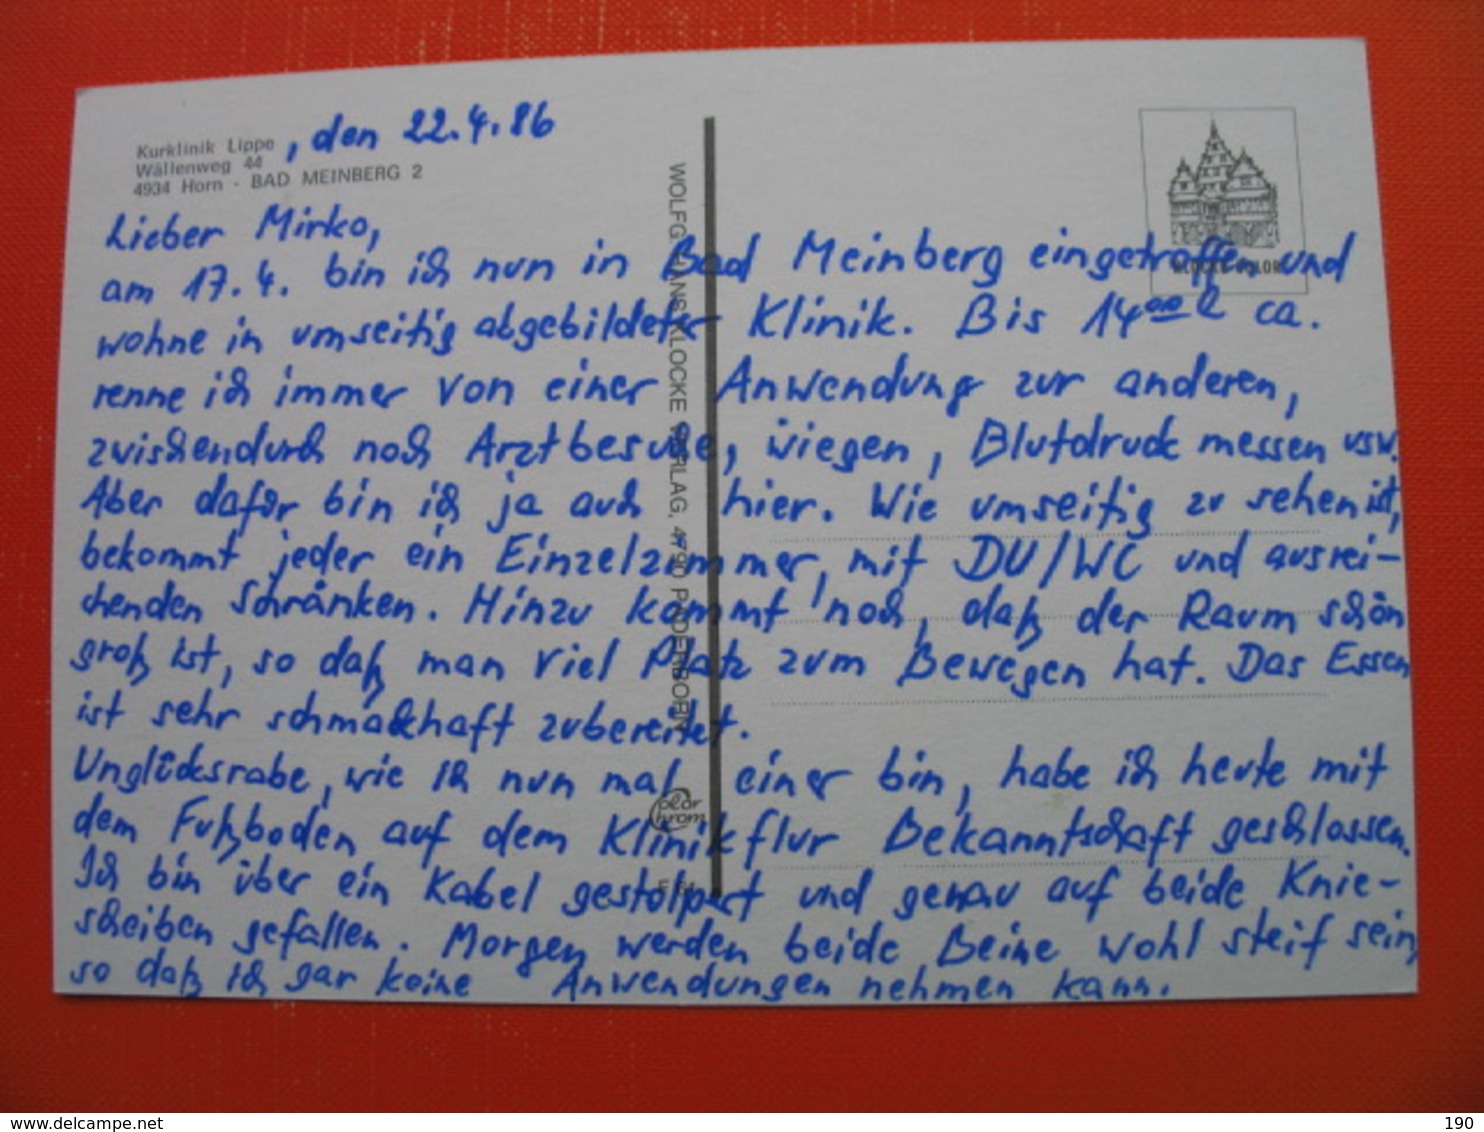 Kurklinik Lippe, den 22.4.86
Wällenweg 44
4934 Horn - BAD MEINBERG 2
Lieber Mirko,
am 17.4. bin ich nun in Bad Meinberg eingetroffen und
wohne in umseitig abgebildeter Klinik. Bis 14⁰⁰ h ca.
renne ich immer von einer Anwendung zur anderen,
zwischendurch noch Arztbesuche, wiegen, Blutdruck messen usw.
Aber dafür bin ich ja auch hier. Wie umseitig zu sehen ist,
bekommt jeder ein Einzelzimmer, mit DU/WC und ausrei-
chenden Schränken. Hinzu kommt noch, daß der Raum schön
groß ist, so daß man viel Platz zum Bewegen hat. Das Essen
ist sehr schmackhaft zubereitet.
Unglücksrabe, wie ich nun mal einer bin, habe ich heute mit
dem Fußboden auf dem Klinikflur Bekanntschaft geschlossen.
Ich bin über ein Kabel gestolpert und genau auf beide Knie-
scheiben gefallen. Morgen werden beide Beine wohl steif sein,
so daß ich gar keine Anwendungen nehmen kann.
WOLFGANG HANS KLOCKE VERLAG, 4790 PADERBORN
KLOCKE COLOR
Color
Chrom
delcampe.net
myriam
190